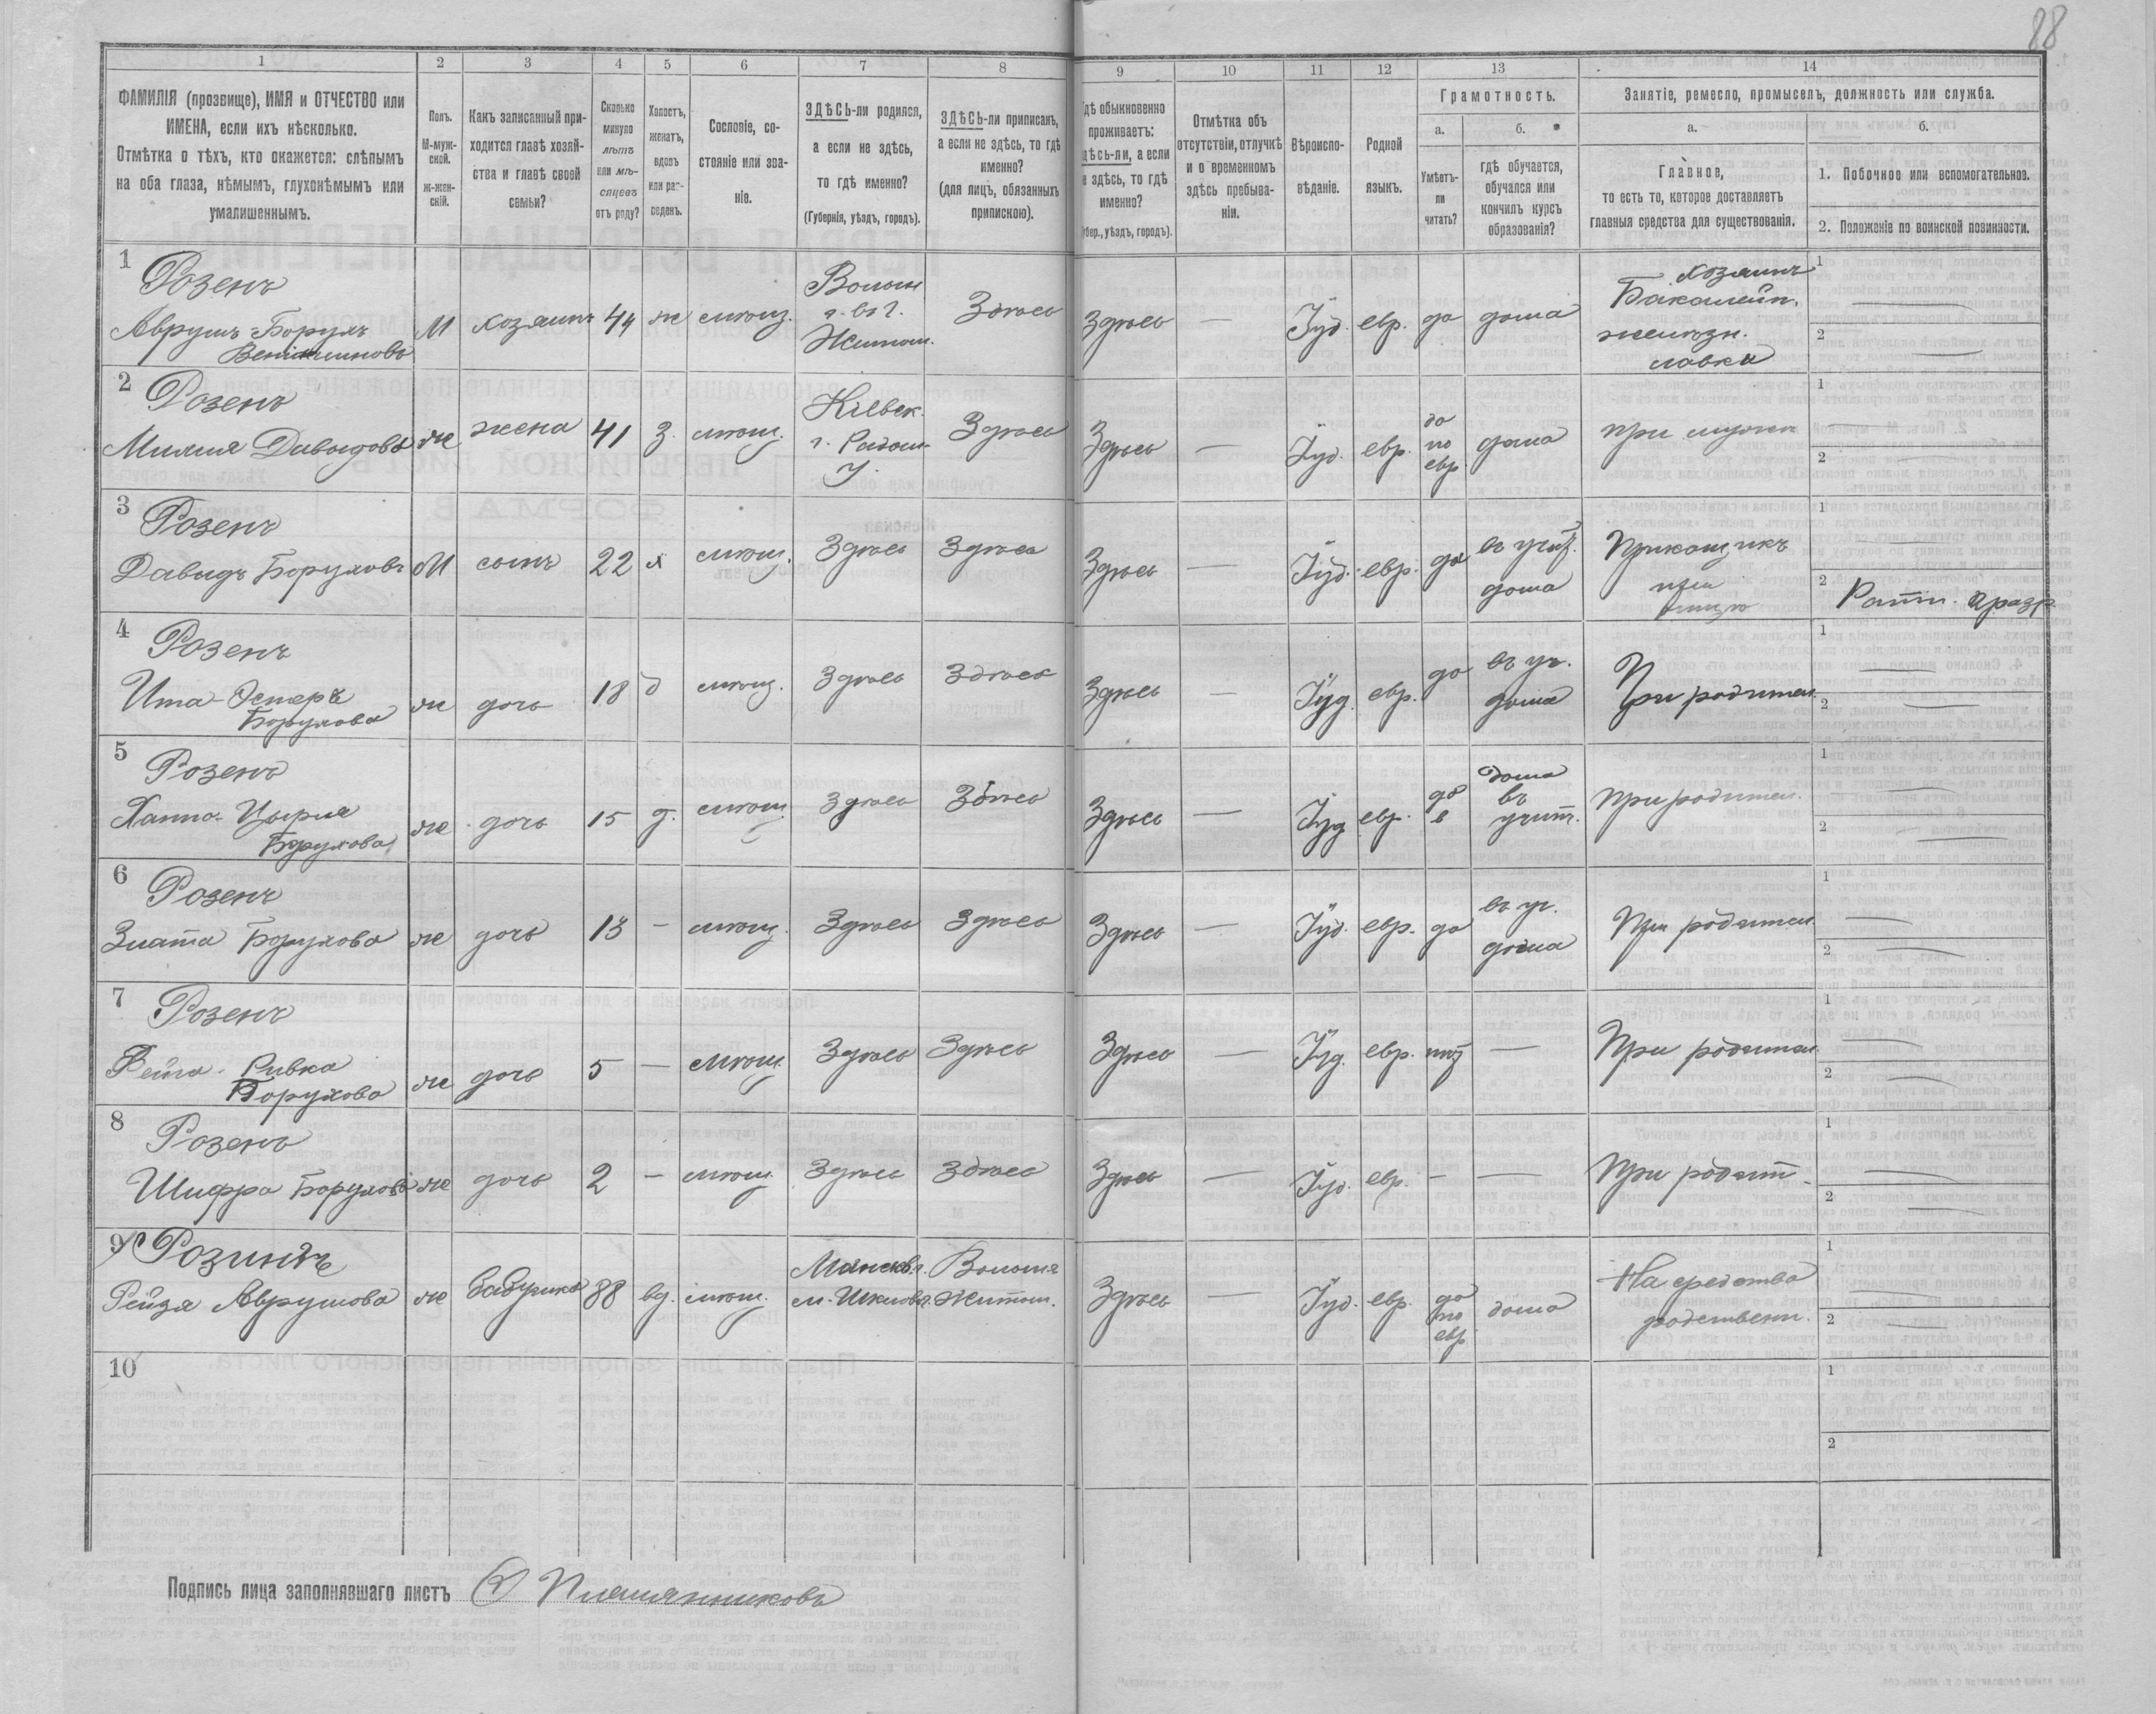 88
1 2 3 4 5 6 7 8 9 10 11 12 13 14
ФАМИЛІЯ (прозвище), ИМЯ и ОТЧЕСТВО или
ИМЕНА, если ихъ нѣсколько.
Отмѣтка о тѣхъ, кто окажется: слѣпымъ
на оба глаза, нѣмымъ, глухонѣмымъ или
умалишеннымъ.
Полъ.
М-муж-
ской.
ж-жен-
скій.
Какъ записанный при-
ходится главѣ хозяй-
ства и главѣ своей
семьи?
Сколько
минуло
лѣтъ
или мѣ-
сяцевъ
отъ роду?
Холостъ,
женатъ,
вдовъ
или раз-
веденъ.
Сословіе, со-
стояніе или зва-
ніе.
ЗДѢСЬ-ли родился,
а если не здѣсь,
то гдѣ именно?
(Губернія, уѣздъ, городъ).
ЗДѢСЬ-ли приписанъ,
а если не здѣсь, то гдѣ
именно?
(для лицъ, обязанныхъ
припискою).
дѣ обыкновенно
проживаетъ:
дѣсь-ли, а если
е здѣсь, то гдѣ
именно?
убер., уѣздъ, городъ).
Отмѣтка объ
отсутствіи, отлучкѣ
и о временномъ
здѣсь пребыва-
ніи.
Вѣроиспо-
вѣданіе.
Родной
языкъ.
Грамотность.
а.
Умѣетъ-
ли
читать?
б.
гдѣ обучается,
обучался или
кончилъ курсъ
образованія?
Занятіе, ремесло, промыселъ, должность или служба.
а.
Главное,
то есть то, которое доставляетъ
главныя средства для существованія.
б.
1. Побочное или вспомогательное.
2. Положеніе по воинской повинности.
1
Розенъ
Аврумъ-Борухъ
Веніаминовъ
М хозяинъ 44 ж мѣщ.
Волын
г. въ г.
Житом.
Здѣсь
Здѣсь — Іуд. евр. да дома
хозяинъ
Бакалейн.
желѣзн.
лавка
1 —
2 —
2
Розенъ
Давыдова
ж жена 41 з. мѣщ.
Кіевск.
г. Радом.
у.
Здѣсь
Здѣсь — Іуд. евр.
да
по
евр
дома
при мужѣ
1 —
2 —
3
Розенъ
Давидъ Боруховъ
М сынъ 22 х мѣщ. Здѣсь Здѣсь
Здѣсь — Іуд. евр. да
въ учит.
дома
Прикащикъ
при
1 —
2 Ратн. 2 разр.
4
Розенъ
Ита-Эстеръ
Борухова
ж дочь 18 д мѣщ. Здѣсь Здѣсь
Здѣсь — Іуд. евр. да
въ уч.
дома
При родител.
1 —
2 —
5
Розенъ
Ханна-Цырля
Борухова
ж дочь 15 д. мѣщ. Здѣсь Здѣсь
Здѣсь — Іуд евр. да
дома
въ
учит.
При родител.
1 —
2 —
6
Розенъ
Злата Борухова
ж дочь 13 — мѣщ. Здѣсь Здѣсь
Здѣсь — Іуд. евр. да
въ уч.
дома
При родител.
1 —
2 —
7
Розенъ
Фейга-Ривка
Борухова
ж дочь 5 — мѣщ. Здѣсь Здѣсь
Здѣсь — Іуд. евр. нѣт —
При родител.
1 —
2 —
8
Розенъ
Шифра Борухова
ж дочь 2 — мѣщ. Здѣсь Здѣсь
Здѣсь — Іуд. евр. — —
При родит.
1 —
2 —
9
Рейзя Аврумова
ж бабушка 88 вд. мѣщ.
м. Шклов.
Волын
Житом.
Здѣсь — Іуд. евр.
да
по
евр
дома
На средства
родственн.
1 —
2 —
10
1
2
Подпись лица заполнявшаго листъ